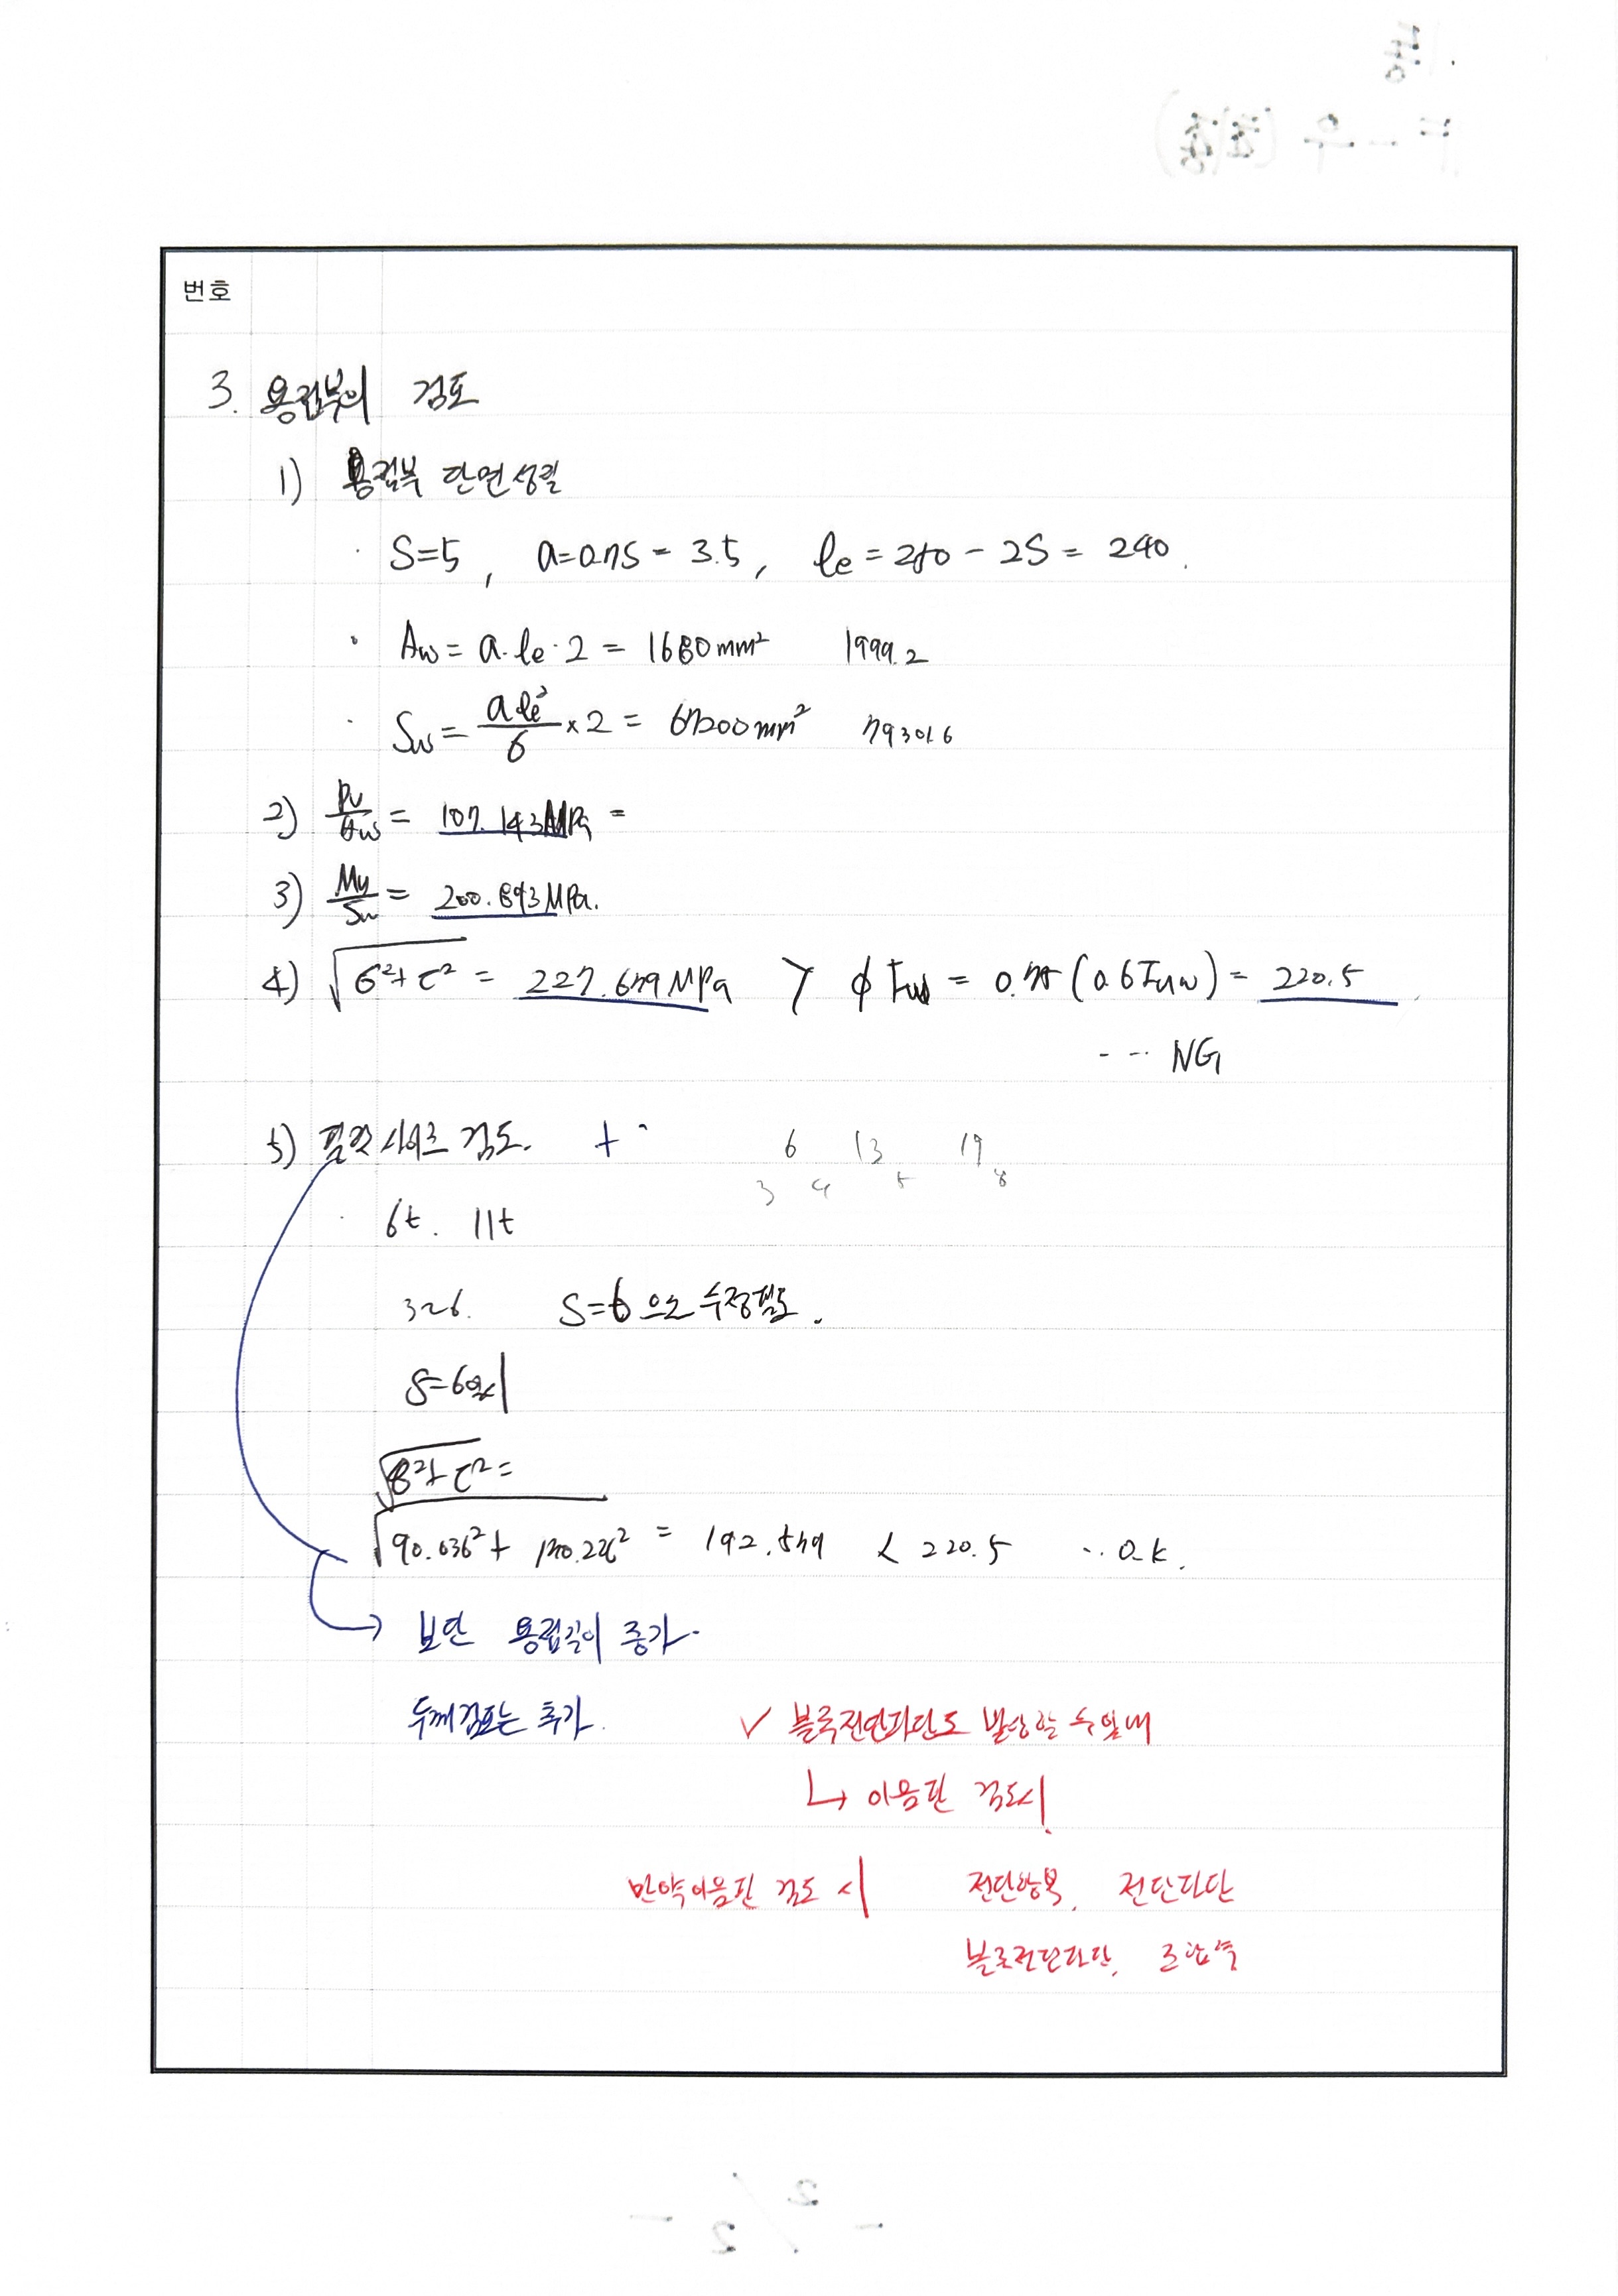 번호
3. 용접부의 검토
1) 용접부 단면성질
· S=5, a=0.7S = 3.5, le = 250 - 2S = 240.
· Aw = a·le·2 = 1680mm² 1999.2
· Sw = a le²/6 × 2 = 67200mm² 793016
2) Pu/Aw = 107.143MPa =
3) Mu/Sw = 200.893MPa.
4) √σ²+τ² = 227.679MPa > φFw = 0.75(0.6Fuw) = 220.5
--- NG
5) 필렛사이즈 검토. +
6 13 19
3 4 5 8
· 6t. 11t
3~6. S=6으로 수정검토.
S=6일시
√σ²+τ² =
√90.036²+ 170.226² = 192.579 < 220.5 ·· O.K.
보안 용접길이 증가.
두께검토는 추가.
✓ 블록전단파단도 발생할 수 있네
↳ 이음판 검토시
만약이음판 검토 시 전단항복, 전단파단
블록전단파단,
- 2/2 -